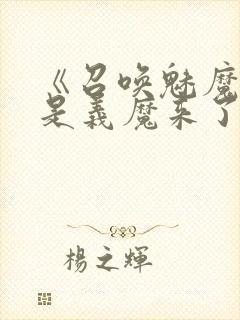 《召唤魅魔
是義魔来了
楊之輝